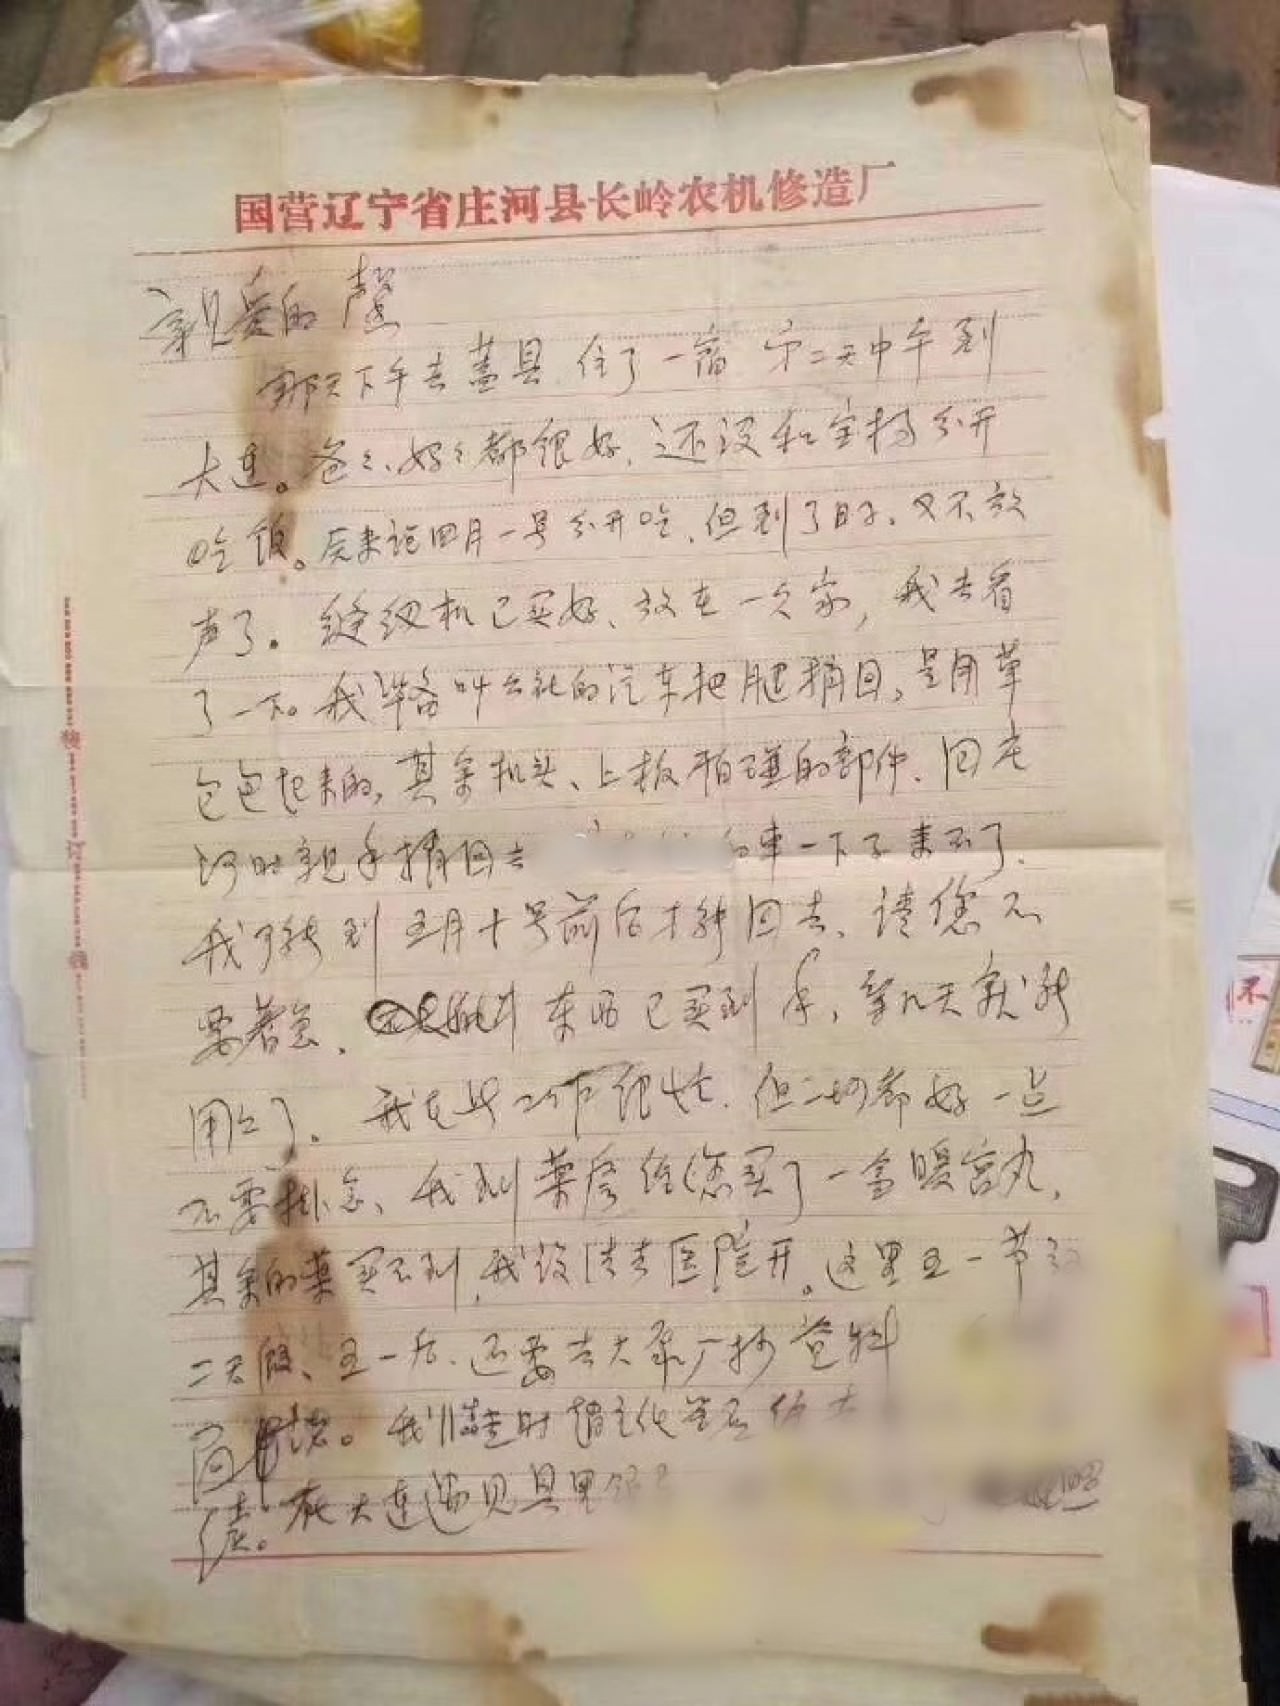 国营辽宁省庄河县长岭农机修造厂
亲爱的馨
那天下午去盖县住了一宿 第二天中午到
大连。爸々、好々都很好,还没和宝杨分开
吃饭。原来说四月一号分开吃,但到了日子,又不放
声了。缝纫机已买好、放在一久家,我去看
了一下。我准备叫公社的汽车把腿捎回,是用草
包包起来的,其余机头、上板怕碰的部件、回庄
河时亲手捎回去 车一下子来不了.
我可能到五月十号前后才能回去、请您不
要着急、 东西已买到手,等几天就能
用上了。我在此工作很忙.但一切都好一点
不要挂念、我到药房给您买了一盒暖宫丸,
其余的药买不到,我设法去医院开。这里五一节
二天假、五一后、还要去大 厂抄资料
我 时
续。在大连遇见县里